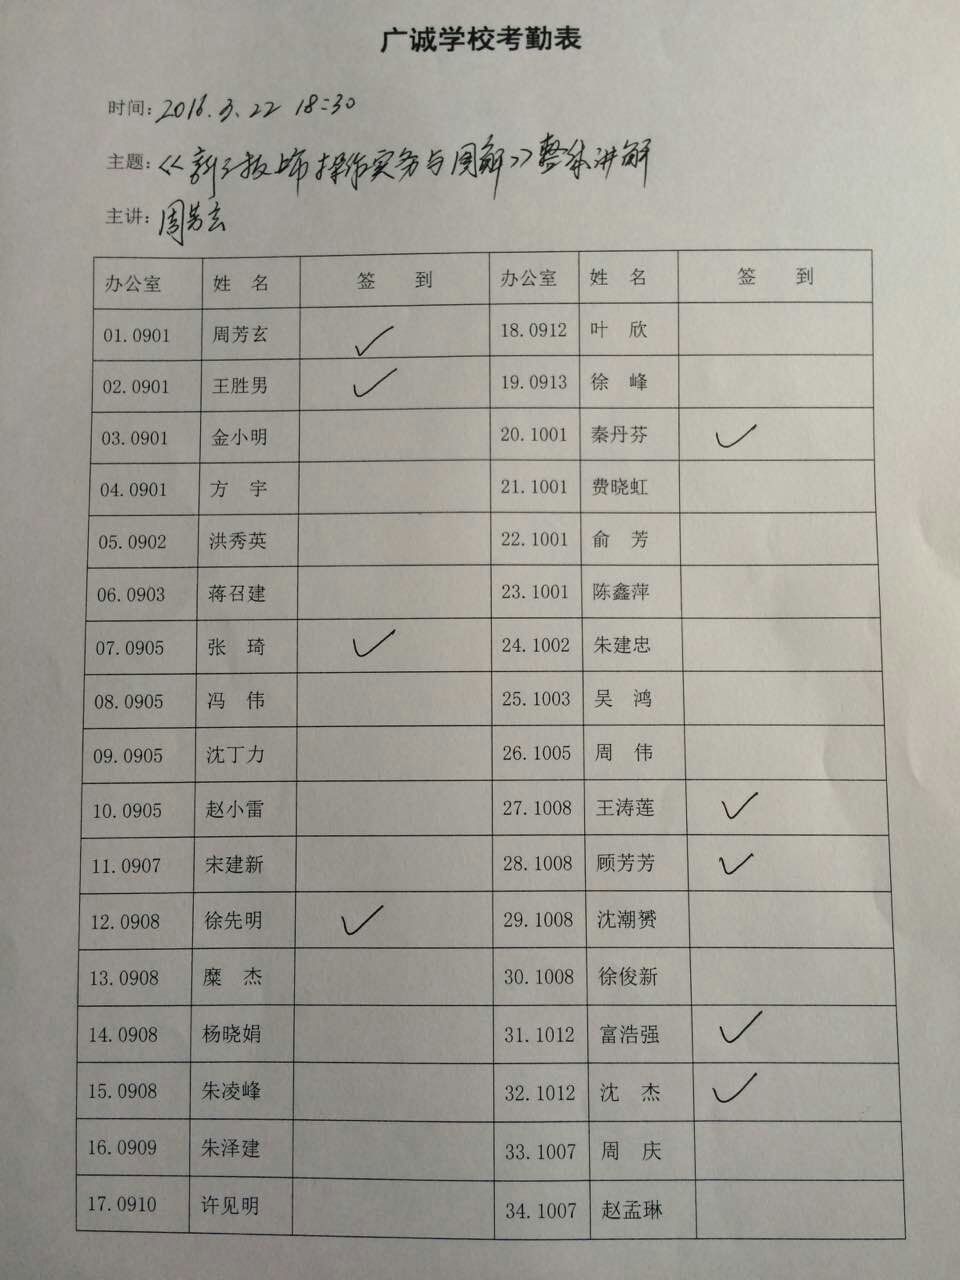 广诚学校考勤表
时间: 2016.3.22 18:30
主题: 《新三板上市操作实务与图解》整体讲解
主讲: 周芳玄
办公室 姓 名 签 到 办公室 姓 名 签 到
01.0901 周芳玄 ✓ 18.0912 叶 欣
02.0901 王胜男 ✓ 19.0913 徐 峰
03.0901 金小明 20.1001 秦丹芬 ✓
04.0901 方 宇 21.1001 费晓虹
05.0902 洪秀英 22.1001 俞 芳
06.0903 蒋召建 23.1001 陈鑫萍
07.0905 张 琦 ✓ 24.1002 朱建忠
08.0905 冯 伟 25.1003 吴 鸿
09.0905 沈丁力 26.1005 周 伟
10.0905 赵小雷 27.1008 王涛莲 ✓
11.0907 宋建新 28.1008 顾芳芳 ✓
12.0908 徐先明 ✓ 29.1008 沈潮赟
13.0908 糜 杰 30.1008 徐俊新
14.0908 杨晓娟 31.1012 富浩强 ✓
15.0908 朱凌峰 32.1012 沈 杰 ✓
16.0909 朱泽建 33.1007 周 庆
17.0910 许见明 34.1007 赵孟琳